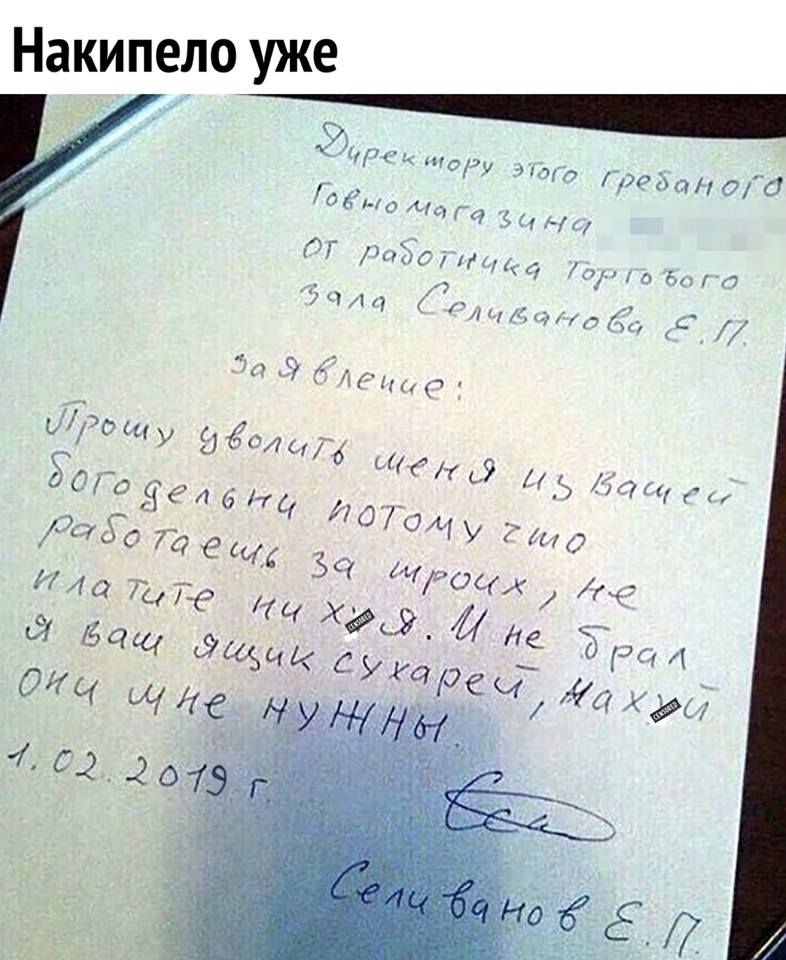 Накипело уже
Директору этого гребаного
Говномагазина
от работника Торгового
зала Селиванова Е.П.
заявление:
Прошу уволить меня из вашей
богодельни потому что
работаешь за троих, не
платите ни х я. И не брал
CENSORED
я ваш ящик сухарей, нах й
CENSORED
они мне нужны.
1.02.2019 г.
Селиванов Е.П.